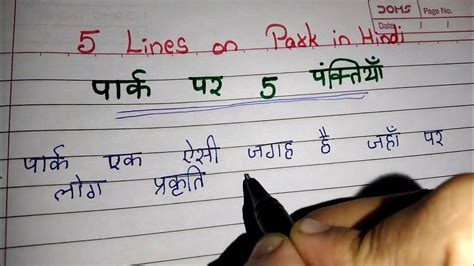 DOMS
Page No.
Date
5 Lines on Park in Hindi
पार्क पर 5 पंक्तियाँ
पार्क एक ऐसी जगह है जहाँ पर
लोग प्रकृति